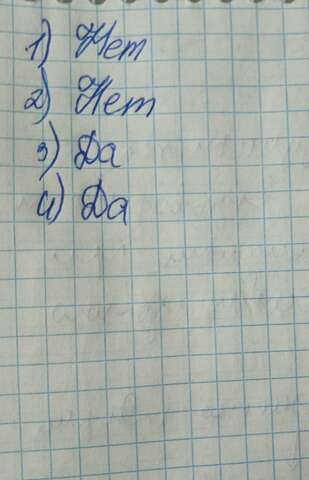 1) Нет
2) Нет
3) Да
4) Да